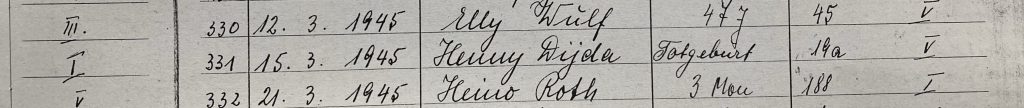 III. 330 12. 3. 1945 Elly Wulf 47 J 45 V
I 331 15. 3. 1945 Henny Dijda Totgeburt 19a V
V 332 21. 3. 1945 Heino Roth 3 Mon 188 I